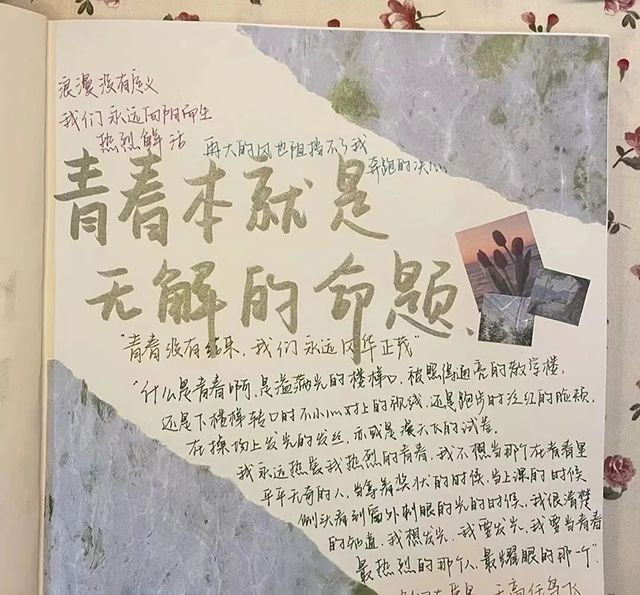 浪漫没有定义
我们永远向阳而生
热烈鲜活
再大的风也阻挡不了我
奔跑的决心
青春本就是
无解的命题、
"青春没有结果，我们永远风华正茂"
"什么是青春啊，是溢满光的楼梯口，被照得通亮的教学楼，
还是下楼梯转口时不小心对上的视线，还是跑步时泛红的脸颊，
在操场上发光的发丝，亦或是演示飞的试卷。
我永远热爱我热烈的青春，我不想当那个在青春里
平平无奇的人，当拿着奖状的时候，当上课的时候
侧头看到窗外刺眼的光的时候，我很清楚
的知道，我想发光，我要发光，我要当青春
最热烈的那个人，最耀眼的那一个"
天高任鸟飞